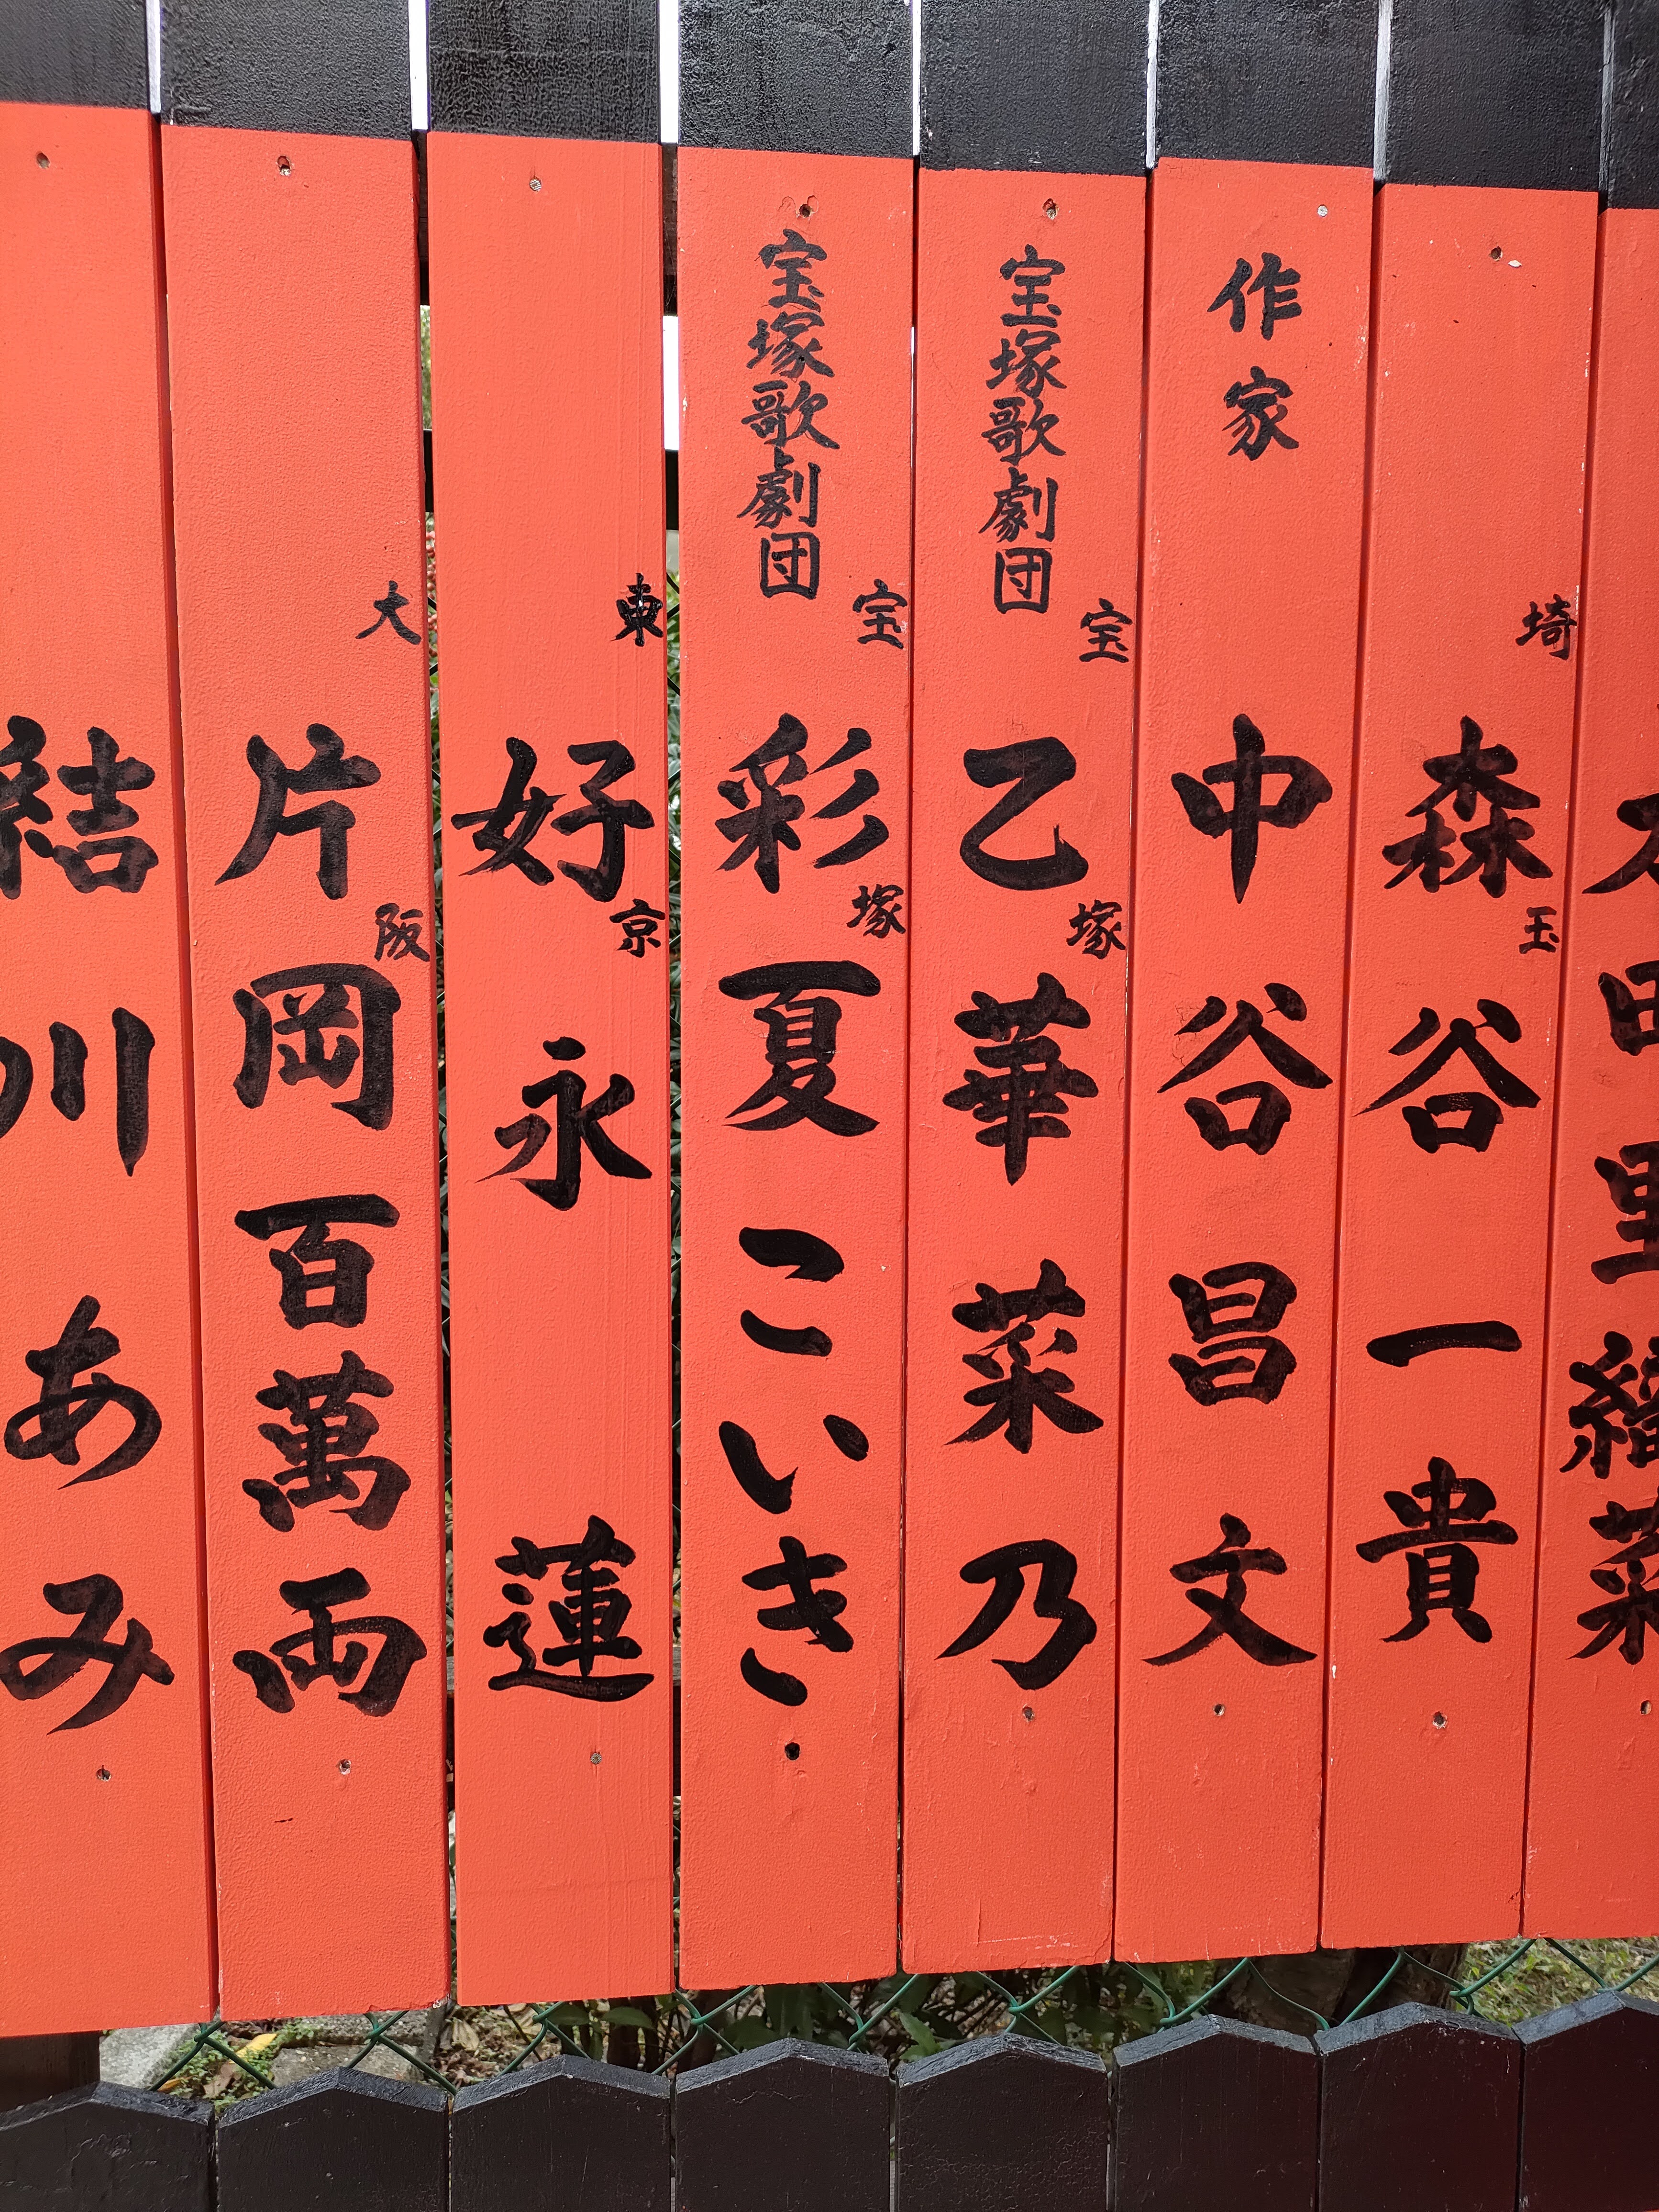 埼玉
森谷一貴
作家
中谷昌文
宝塚歌劇団
宝塚
乙華菜乃
宝塚歌劇団
宝塚
彩夏こいき
東京
好永蓮
大阪
片岡百萬両
結川あみ